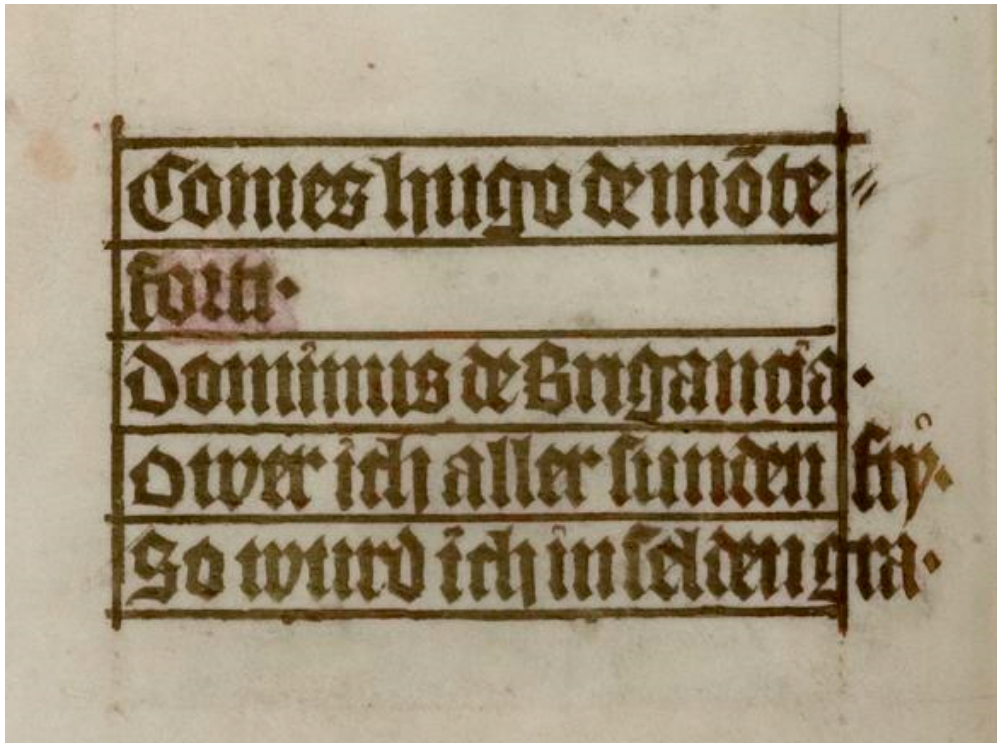 Comes hugo de mōte〃
forti·
Dominus de Brigancia·
O wer ich aller sunden frÿ·
So wurd ich in selden gra·